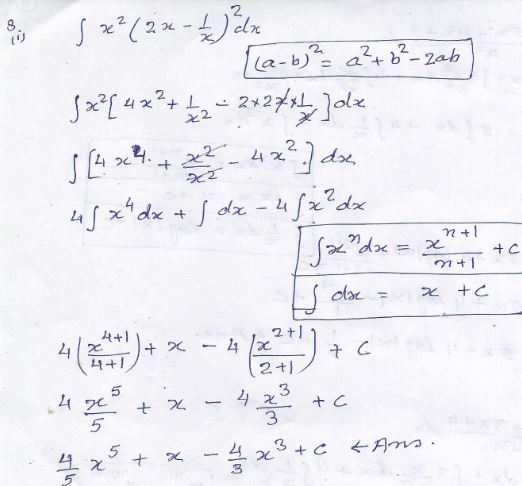 8
(i) ∫ x² (2x - 1/x)² dx
(a-b)² = a² + b² - 2ab
∫ x² [4x² + 1/x² - 2×2x×1/x] dx
∫ [4x⁴ + x²/x² - 4x²] dx
4∫ x⁴ dx + ∫ dx - 4∫ x² dx
∫ xⁿ dx = xⁿ⁺¹/n+1 + c
∫ dx = x + c
4(x⁴⁺¹/4+1) + x - 4(x²⁺¹/2+1) + c
4 x⁵/5 + x - 4 x³/3 + c
4/5 x⁵ + x - 4/3 x³ + c ← Ans.